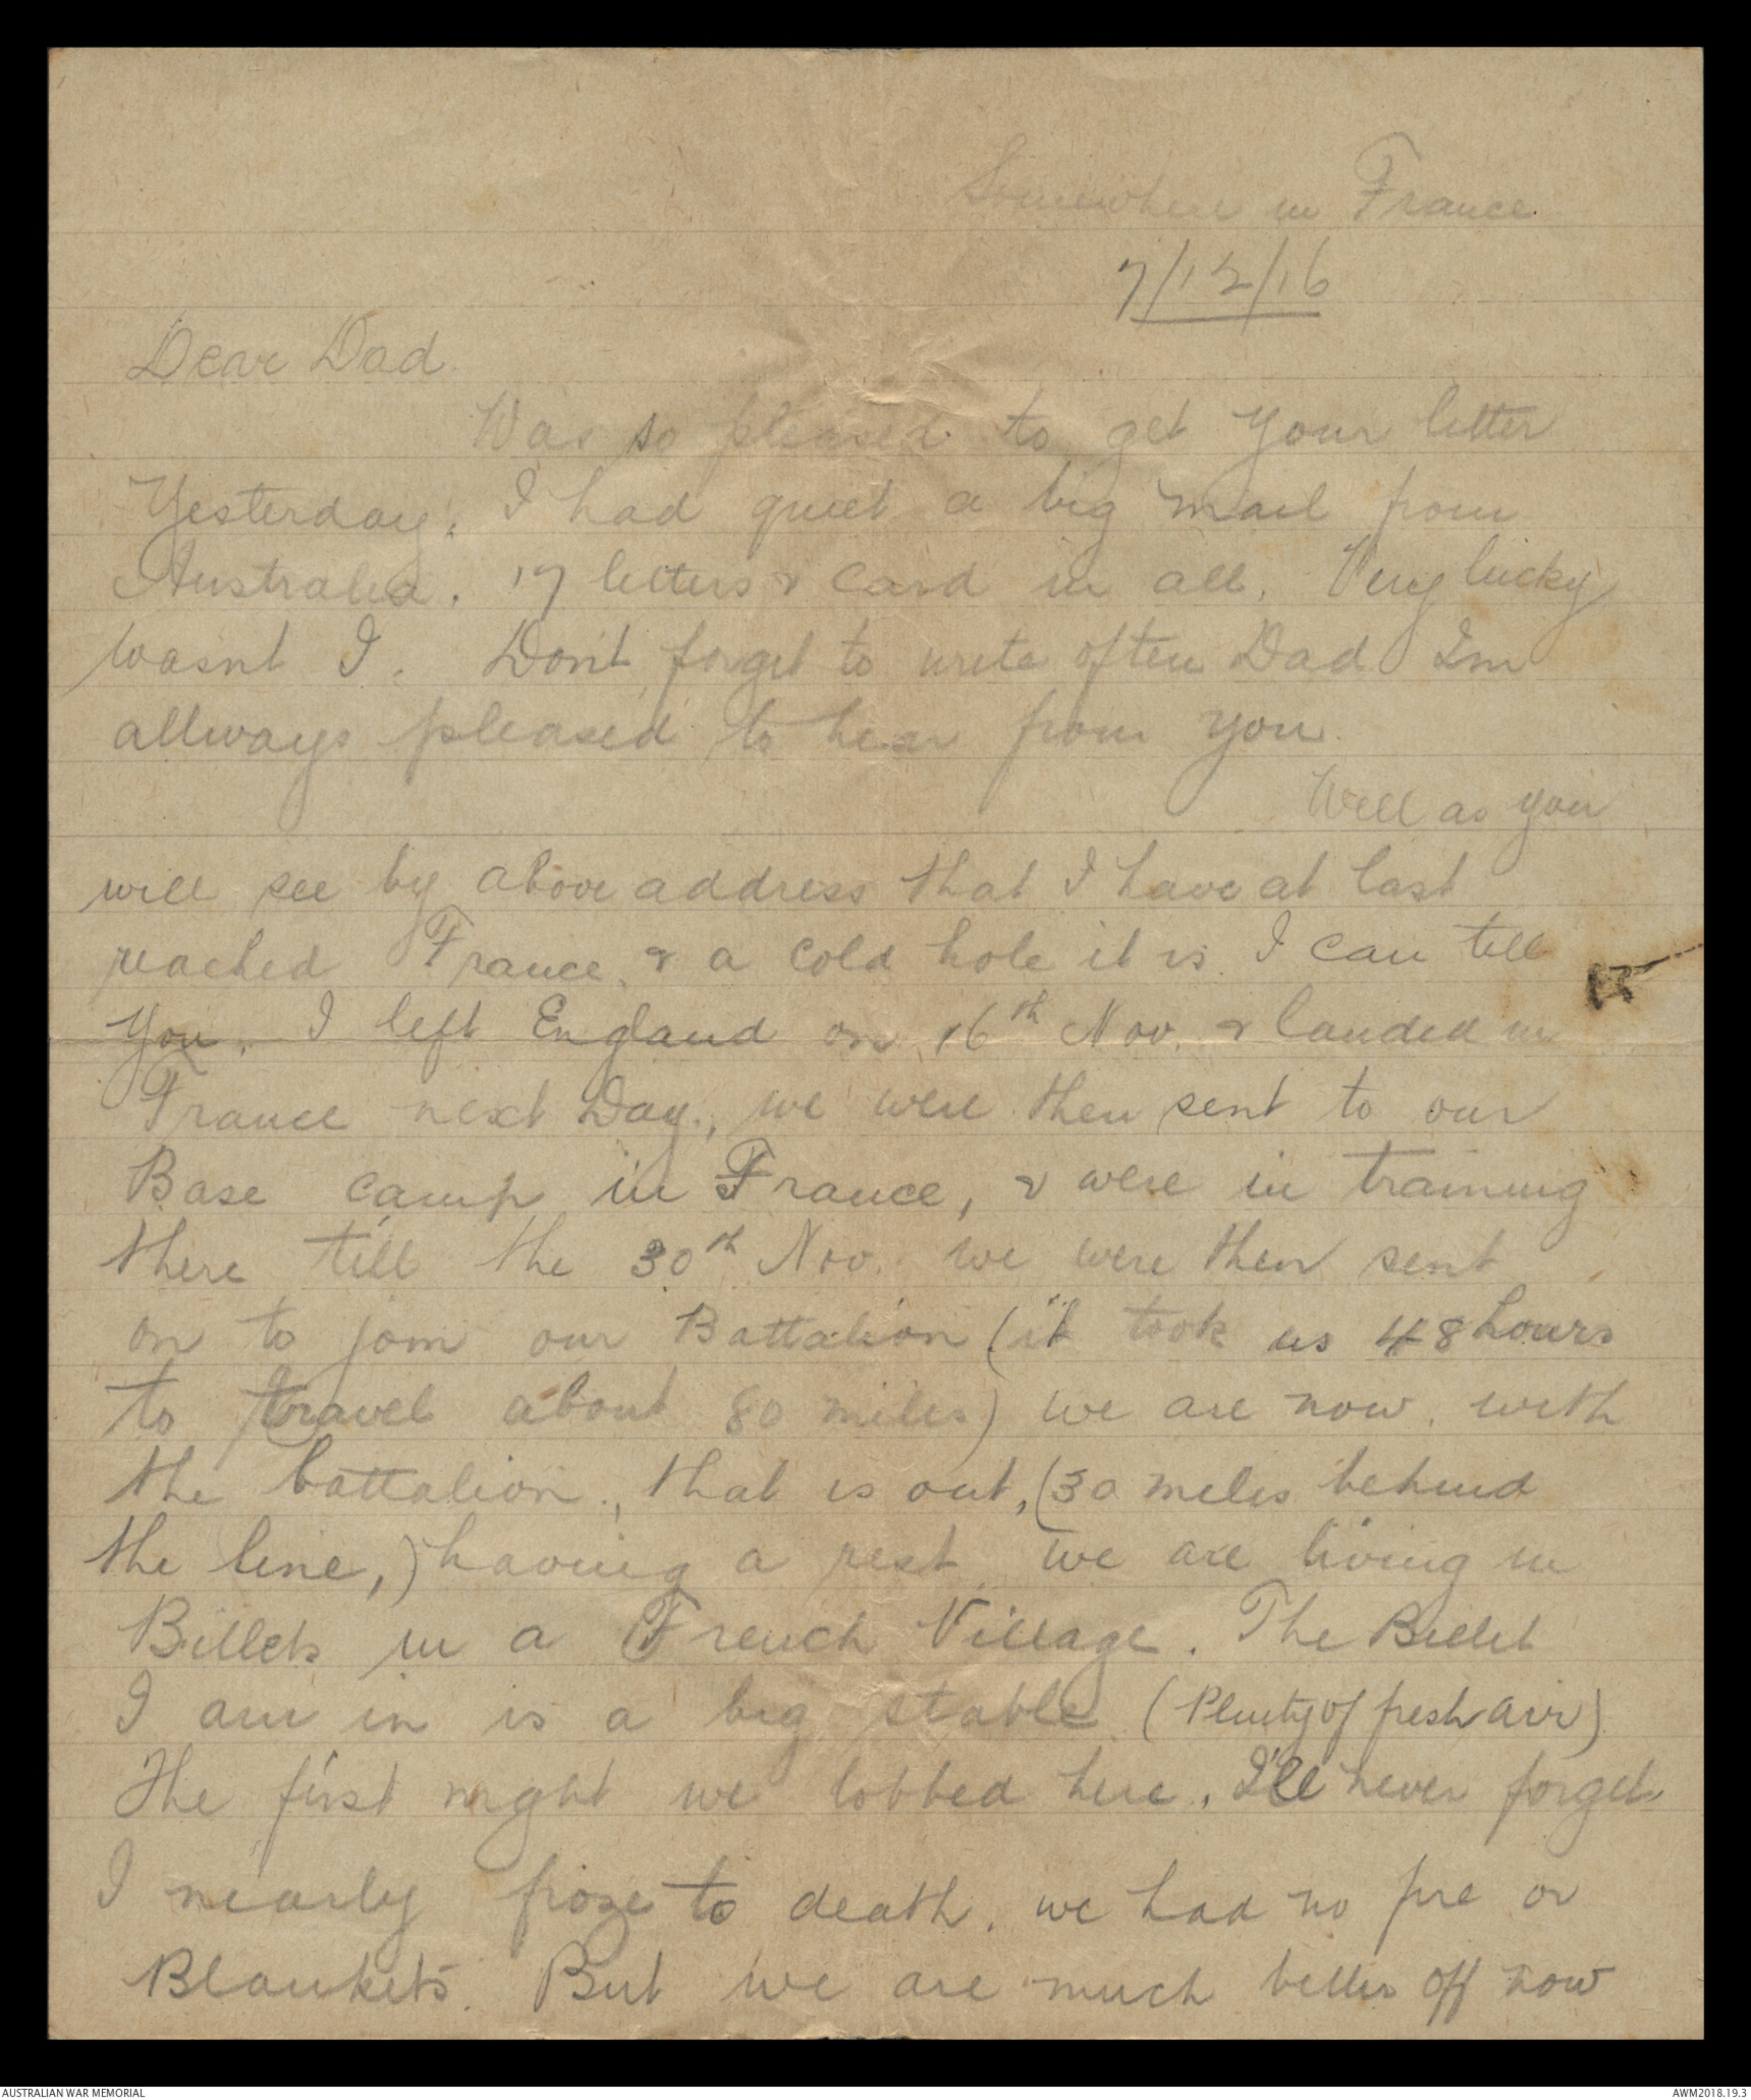 Somewhere in France.
7/12/16
Dear Dad.
Was so pleased to get your letter
Yesterday. I had quiet a big mail from
Australia. 17 letters & card in all. Very lucky
wasnt I. Don't forget to write often Dad Im
allways pleased to hear from you.
Well as you
will see by above address that I have at last
reached France, & a cold hole it is. I can tell
You. I left England on 16th Nov. & landed in
France next Day., we were then sent to our
Base camp in France, & were in training
there till the 30th Nov. we were then sent
on to join our Battalion (it took us 48 hours
to travel about 80 miles) we are now. with
the battalion., that is out, (30 miles behind
the line,) having a rest we are living in
Billets in a French Village. The Billet
I am in is a big stable (Plenty of fresh air)
The first night we lobbed here, I'll never forget.
I nearly froze to death. we had no fire or
Blankets. But we are much better off now
AUSTRALIAN WAR MEMORIAL
AWM2018.19.3